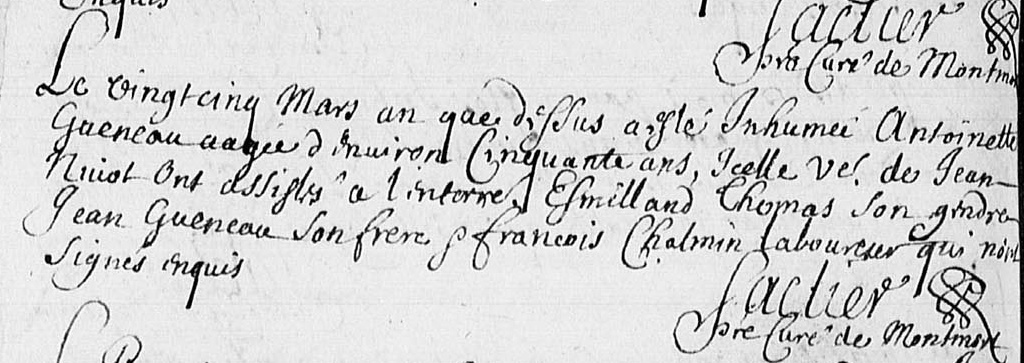 Enquis
Lactier
pre Cure. de Montmort
Le vingtcinq Mars an que dessus a esté Inhumeé Antoinette
Gueneau aagée d'environ Cinquante ans, Icelle ve. de Jean
Nivot ont assistés a l'enterre. Esmilland Thomas son gendre
Jean Gueneau son frere & francois Chalmin laboureur qui n'ont
signés enquis
Lactier
pre Cure. de Montmort